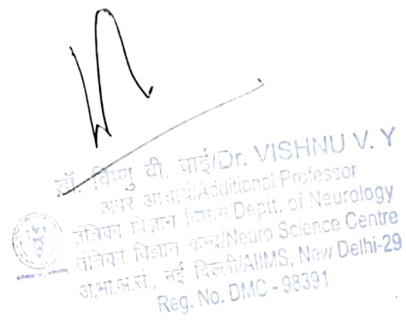 डॉ. विष्णु वी. वाई/Dr. VISHNU V. Y
अपर आचार्य/Additional Professor
तंत्रिका विज्ञान विभाग/Deptt. of Neurology
तंत्रिका विज्ञान केन्द्र/Neuro Science Centre
अ.भा.आ.सं., नई दिल्ली/AIIMS, New Delhi-29
Reg. No. DMC - 98391